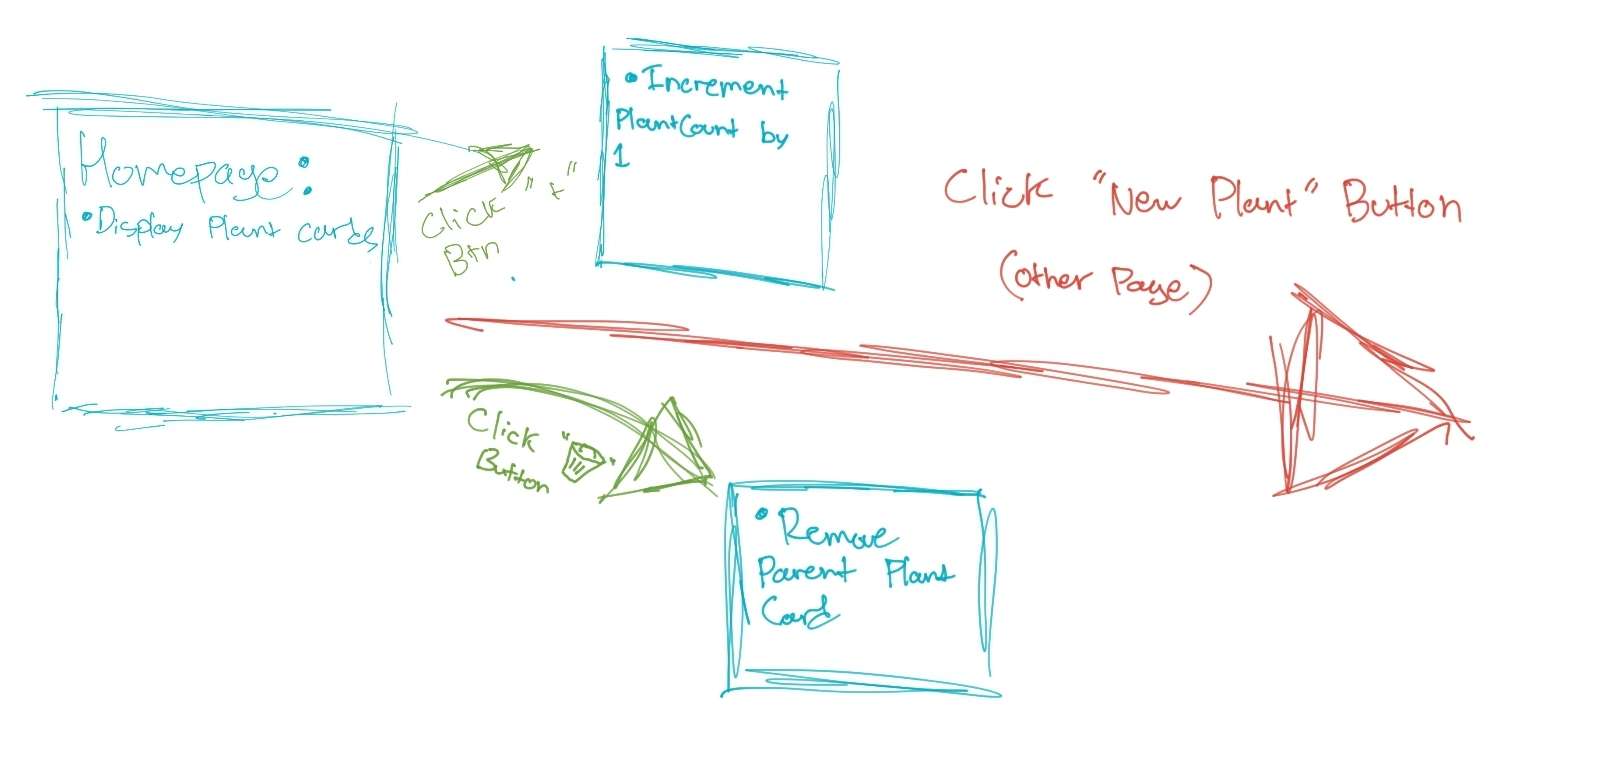 Homepage:
• Display Plant cards
Click "+"
Btn
• Increment
PlantCount by
1
Click "New Plant" Button
(other Page)
Click " "
Button
• Remove
Parent Plant
Card